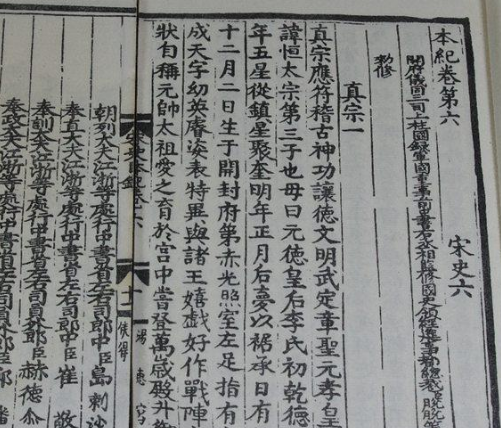 本紀卷第六 宋史六
開府儀同三司上柱國錄軍國重事前中書右丞相監修國史領經筵事都總裁臣脫脫等
勅修
真宗一
真宗應符稽古神功讓德文明武定章聖元孝皇
諱恒太宗第三子也母曰元德皇后李氏初乾德
年五星從鎮星聚奎明年正月后夢以裾承日有
十二月二日生于開封府第赤光照室左足指有
成天字幼英睿姿表特異與諸王嬉戲好作戰陣
狀自稱元帥太祖愛之育於宮中嘗登萬歲殿升
朝列大夫江浙等處行中書省左右司郎中臣島剌沙
奉直大夫江浙等處行中書省左右司郎中臣崔敬
奉訓大夫江浙等處行中書省左右司員外郎臣赫德尒
奉政大夫江浙等處行中書省左右司員外郎臣